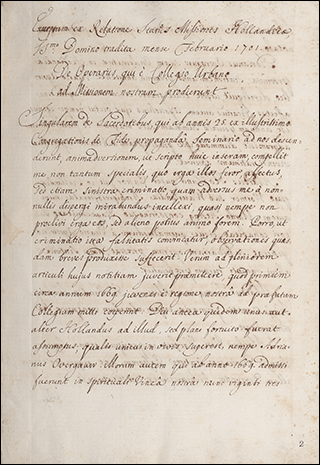 Exceptum ex Relatione Status Missionis Hollandicæ
Ss.mo Domino tradita mense Februario 1701.
De Operarijs, qui è Collegio Urbano
ad Missionem nostram prodierunt
Singularem de Sacerdotibus, qui ab annis 25 ex Illustrissimo
Congregationis de Fide propaganda Seminario ad nos descen-
derunt, animadversionem, ut scripto huic inseram, compellit
me non tantum specialis, quo erga illos feror affectus,
sed etiam sinistra criminatio quam adversus me à non-
nullis dispergi mirabundus intellexi, quasi nempe non
proclivi erga eos, sed alieno potius animo forem. Porro, ut
criminatio ista falsitatis convincatur, observationes quas-
dam breves produxisse suffecerit. Verum ad pleniorem
articuli hujus notitiam juverit præmittere quod primum
circa annum 1669 juvenes è regione nostrâ ad præfatum
Collegium mitti coeperint. Diu anteà quidem unus aut
alter Hollandus ad illud, sed planè fortuito fuerat
assumptus, qualis unicus in suggerit, nempe Adria-
nus Overgauw. Illorum autem qui ab anno 1669 admissi
fuerunt in spirituali Vineâ nostrâ nunc viginti tres
2